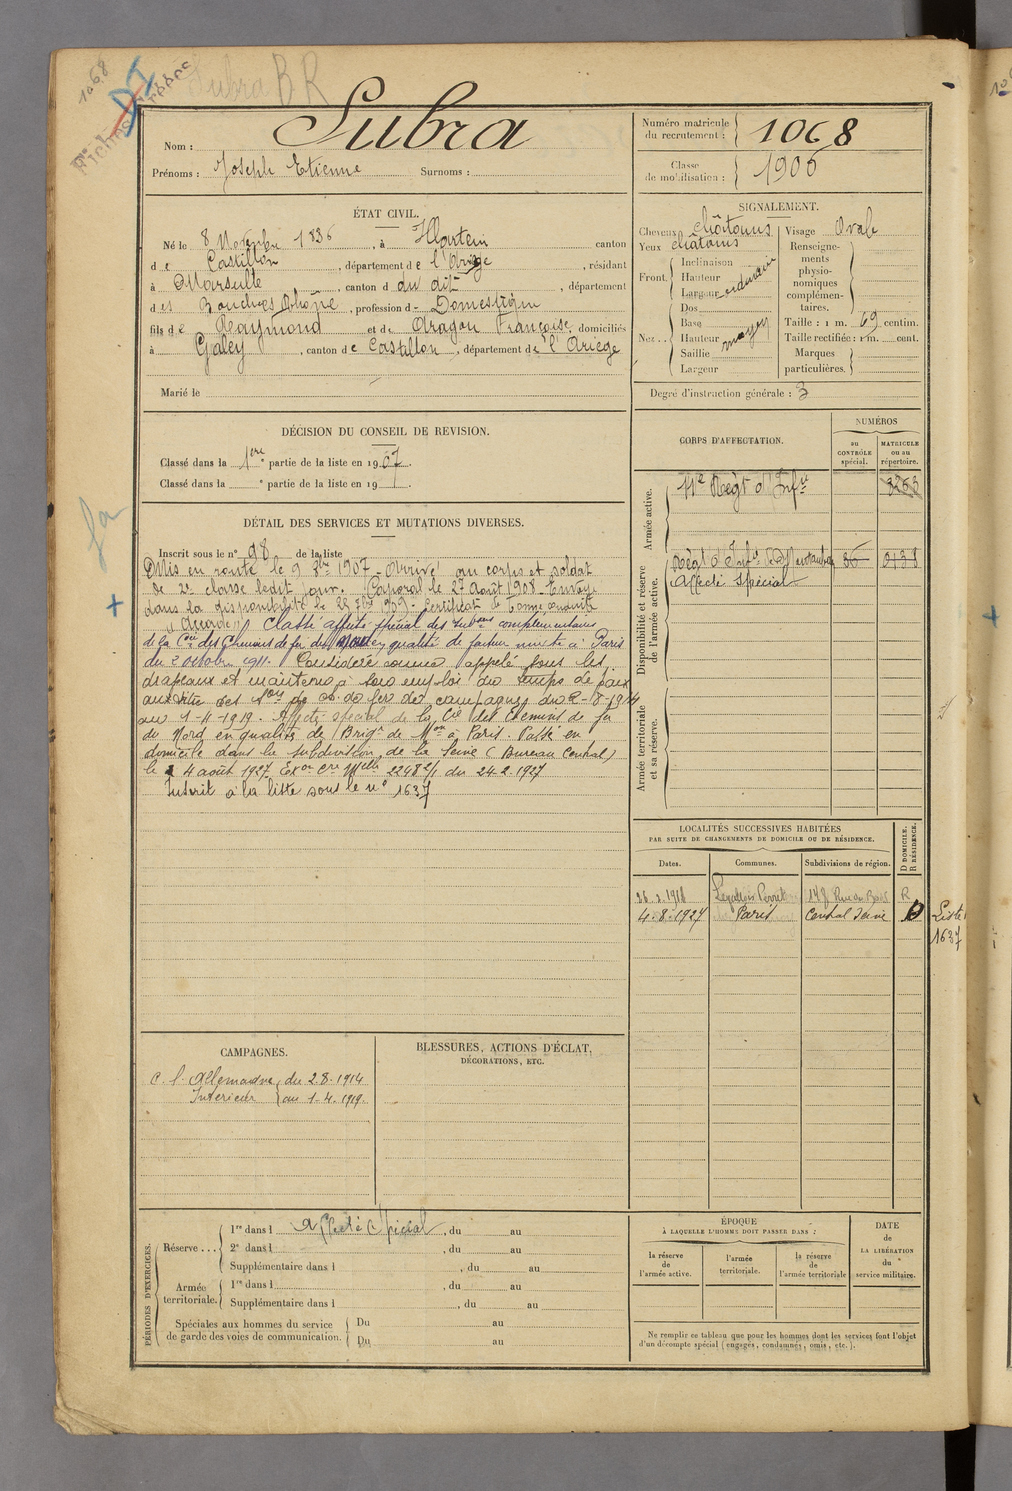 1068
Subra B R
Fiches
Nom : Subra
Prénoms : Joseph Etienne Surnoms :
Numéro matricule du recrutement : 1068
Classe de mobilisation : 1906
ÉTAT CIVIL.
Né le 8 Novembre 1886, à Illartein canton
de Castillon, département de l'Ariège, résidant
à Marseille, canton d du dit, département
des Bouches Rhône, profession de Domestique
fils de Raymond et de Aragou Françoise, domiciliés
à Galey, canton de Castillon, département de l'Ariège
Marié le
SIGNALEMENT.
Cheveux châtains Visage Ovale
Yeux châtains
Front. Inclinaison
Hauteur
Largeur ordinaire
Nez... Dos
Base
Hauteur moyen
Saillie
Largeur
Renseignements physionomiques complémentaires.
Taille : 1 m. 69 centim.
Taille rectifiée : 1 m. cent.
Marques particulières.
Degré d'instruction générale : 3
DÉCISION DU CONSEIL DE REVISION.
Classé dans la 1ère partie de la liste en 1907.
Classé dans la e partie de la liste en 19
CORPS D'AFFECTATION.
NUMÉROS
au CONTRÔLE spécial.
MATRICULE ou au répertoire.
Armée active.
Régt d'Infie 3263
Disponibilité et réserve de l'armée active.
Régt d'Infie de Montauban 36 0138
Affecté Spécial
Armée territoriale et sa réserve.
DÉTAIL DES SERVICES ET MUTATIONS DIVERSES.
Inscrit sous le n° 98 de la liste
Mis en route le 9 8bre 1907 - Arrivé au corps et soldat
de 2e classe ledit jour. Caporal le 27 Août 1908 - Envoyé
dans la disponibilité le 25 7bre 1909 - Certificat de bonne conduite
"Accordé". Classé affecté spécial des subons complémentaires
de la Cie des Chemins de fer du Nord en qualité de facteur mixte à Paris
du 2 octobre 1911. Considéré comme appelé sous les
drapeaux et maintenu à son emploi du temps de paix
au titre des Sons de ch. de fer de campagne du 2-8-1914
au 1-4-1919. Affecté spécial de la Cie des Chemins de fer
du Nord en qualité de Brigr de Mon à Paris. Passé en
domicile dans la subdivision de la Seine (Bureau Central)
le 4 août 1927 Exon Cre Mlle 2248 2/1 du 24.2.1927
Inscrit à la liste sous le n° 1637
LOCALITÉS SUCCESSIVES HABITÉES
PAR SUITE DE CHANGEMENTS DE DOMICILE OU DE RÉSIDENCE.
Dates. Communes. Subdivisions de région. D DOMICILE. R RÉSIDENCE.
Levallois Perret R
4-8-1927 Paris Central Seine D
Liste
1637
CAMPAGNES.
C. l'Allemagne du 2.8.1914
Intérieur au 1.4.1919.
BLESSURES, ACTIONS D'ÉCLAT,
DÉCORATIONS, ETC.
PÉRIODES D'EXERCICES.
Réserve... 1re dans l Affecté Spécial, du au
2e dans l , du au
Supplémentaire dans l , du au
Armée territoriale. 1re dans l , du au
Supplémentaire dans l , du au
Spéciales aux hommes du service de garde des voies de communication. Du au
Du au
ÉPOQUE
À LAQUELLE L'HOMME DOIT PASSER DANS :
la réserve de l'armée active.
l'armée territoriale.
la réserve de l'armée territoriale
DATE de LA LIBÉRATION du service militaire.
Ne remplir ce tableau que pour les hommes dont les services font l'objet
d'un décompte spécial (engagés, condamnés, omis, etc.).